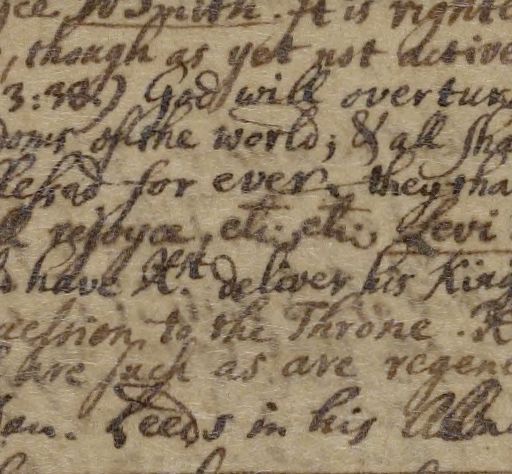 W Smith. It is right
, though as yet not active
3:38.) God will overtur
doms of the world; & all sha
for ever. they sha
rejoyce, etc: etc: Levi
have X.t deliver his King
cession to the Throne.
are such as are regen
Leeds in his Alm